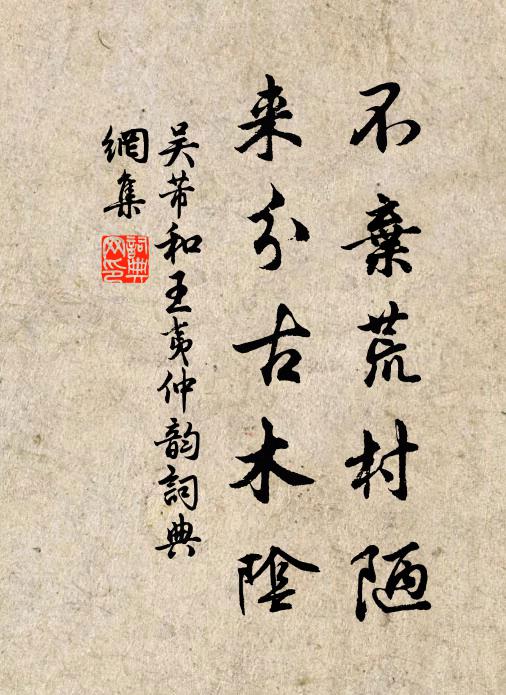 不棄荒村陋
来分古木陰
吴芾和王夷仲韵詞典
網集
詞典网印